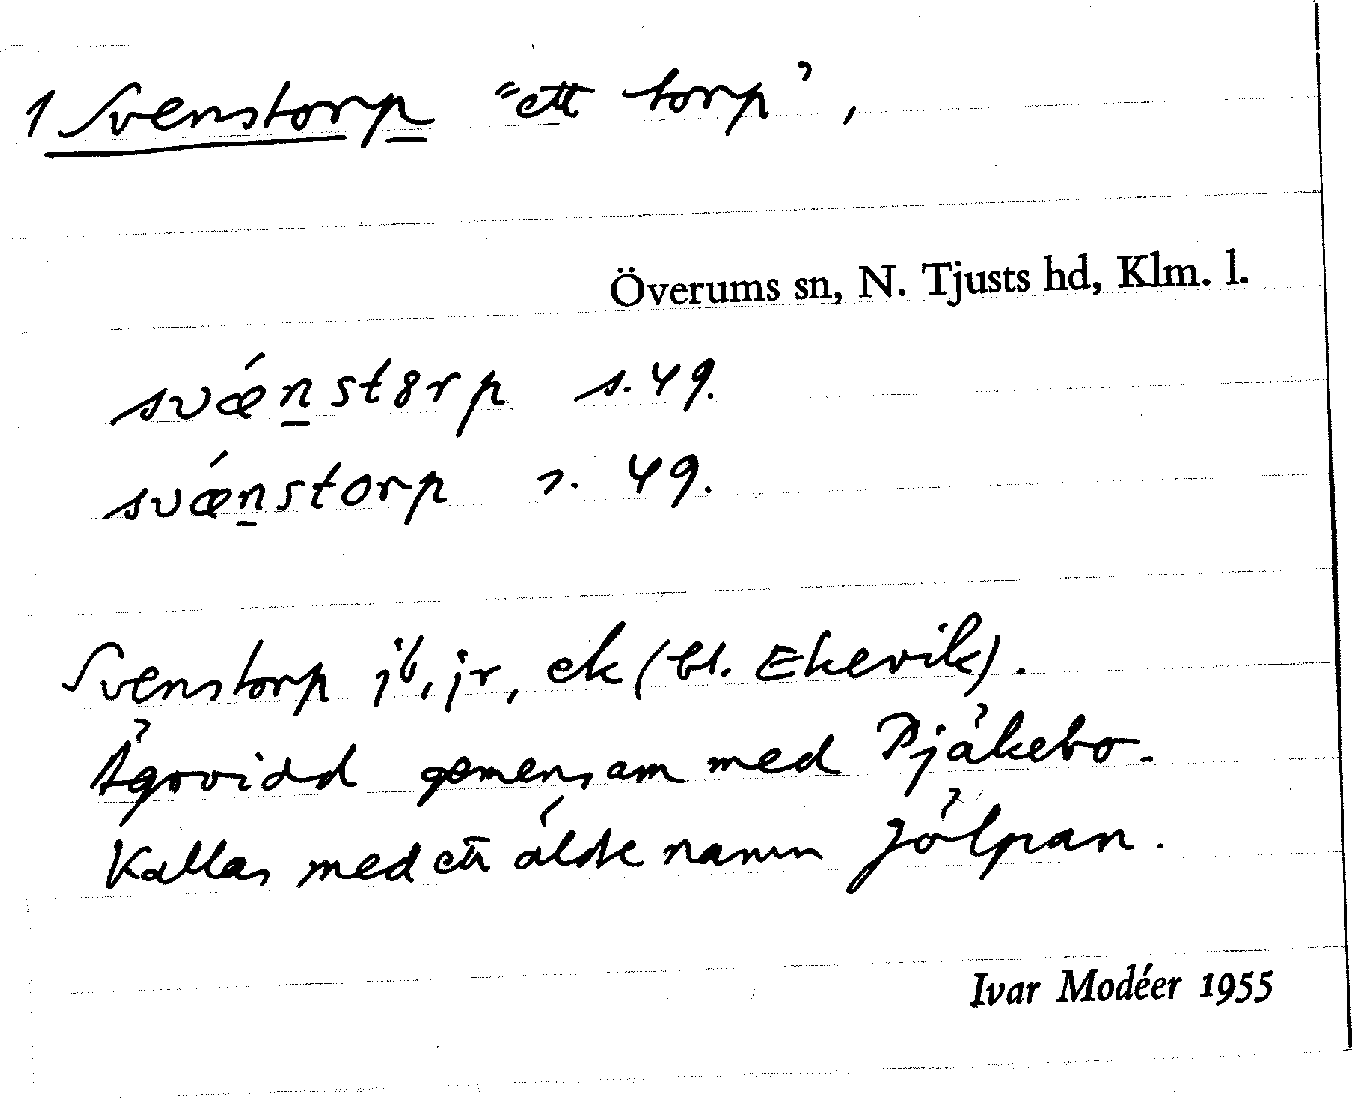 1 Svenstorp "ett torp",
Överums sn, N. Tjusts hd, Klm. l.
svǽnst8rp s. 49.
svǽnstorp s. 49.
Svenstorp jb, jr, ek (bl. Ekevik).
Ägovidd gemensam med Pjäkebo.
Kallas med ett äldre namn Jälpan.
Ivar Modéer 1955